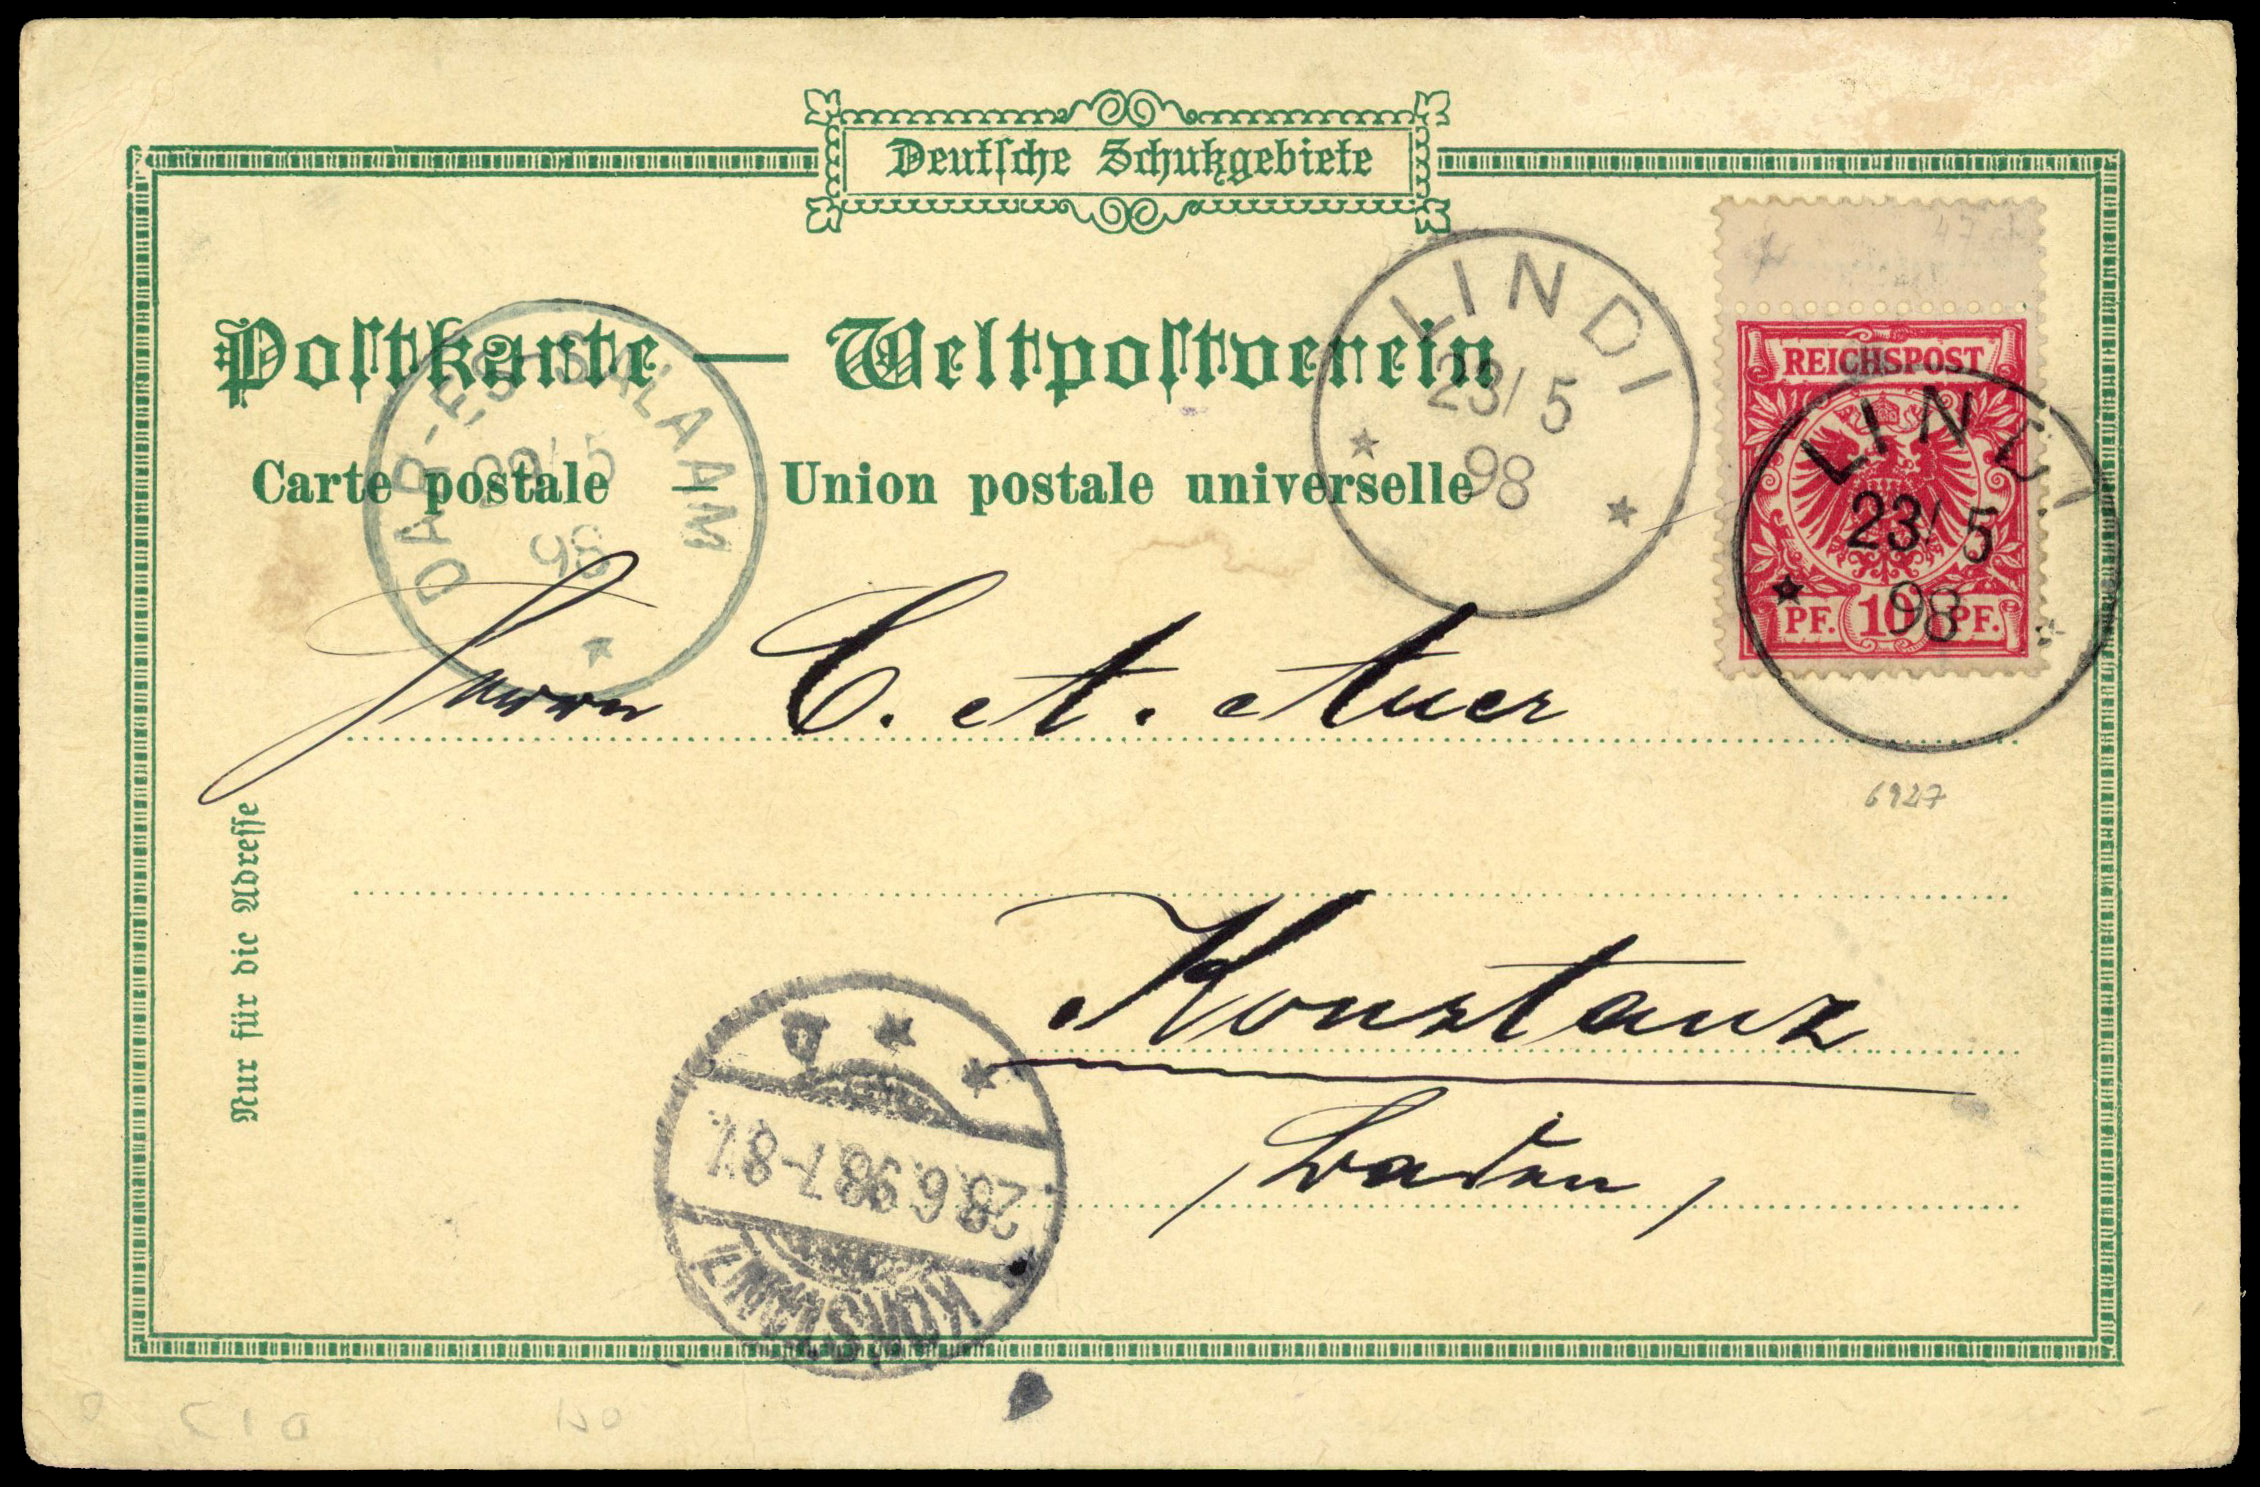 Deutsche Schutzgebiete
Postkarte — Weltpostverein
Carte postale — Union postale universelle
DAR-ES-SALAAM
98
LINDI
23/5
98
REICHSPOST
PF. 10 PF.
LINDI
23/5
98
Herrn C. A. Auer
6927
Nur für die Adresse
Konstanz
(Baden)
KONSTANZ
28.6.98.7-8V.